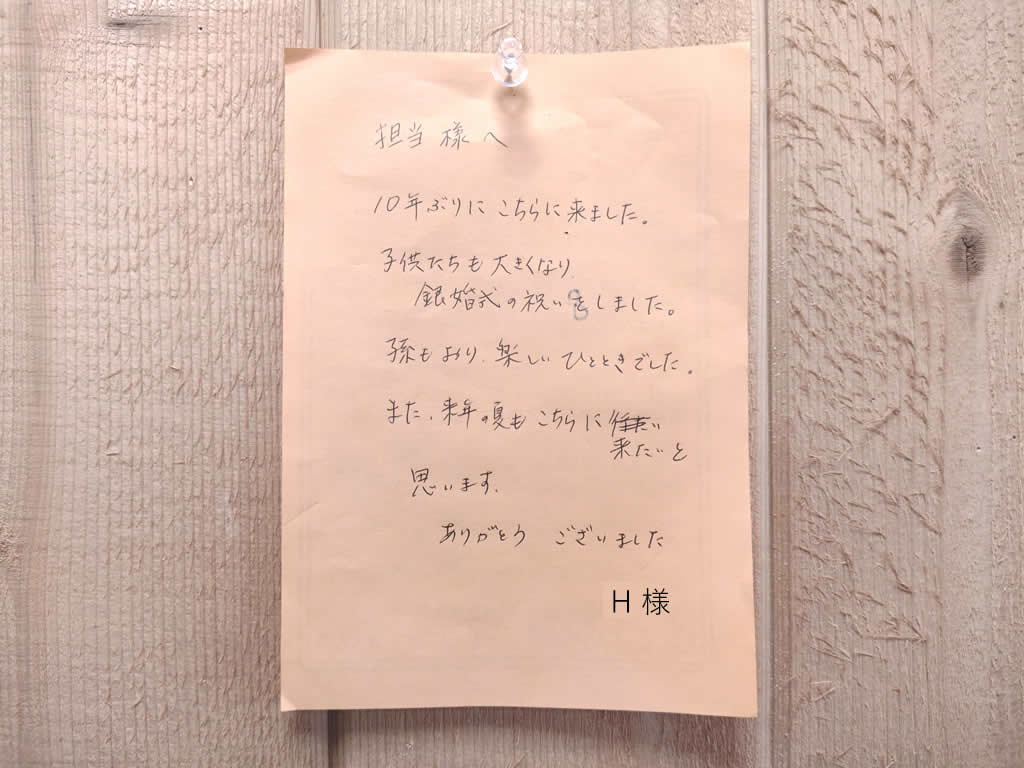 担当様へ
10年ぶりにこちらに来ました。
子供たちも大きくなり、
銀婚式の祝いをしました。
孫もおり、楽しいひとときでした。
また、来年の夏もこちらに
来たいと
思います。
ありがとう ございました
H 様